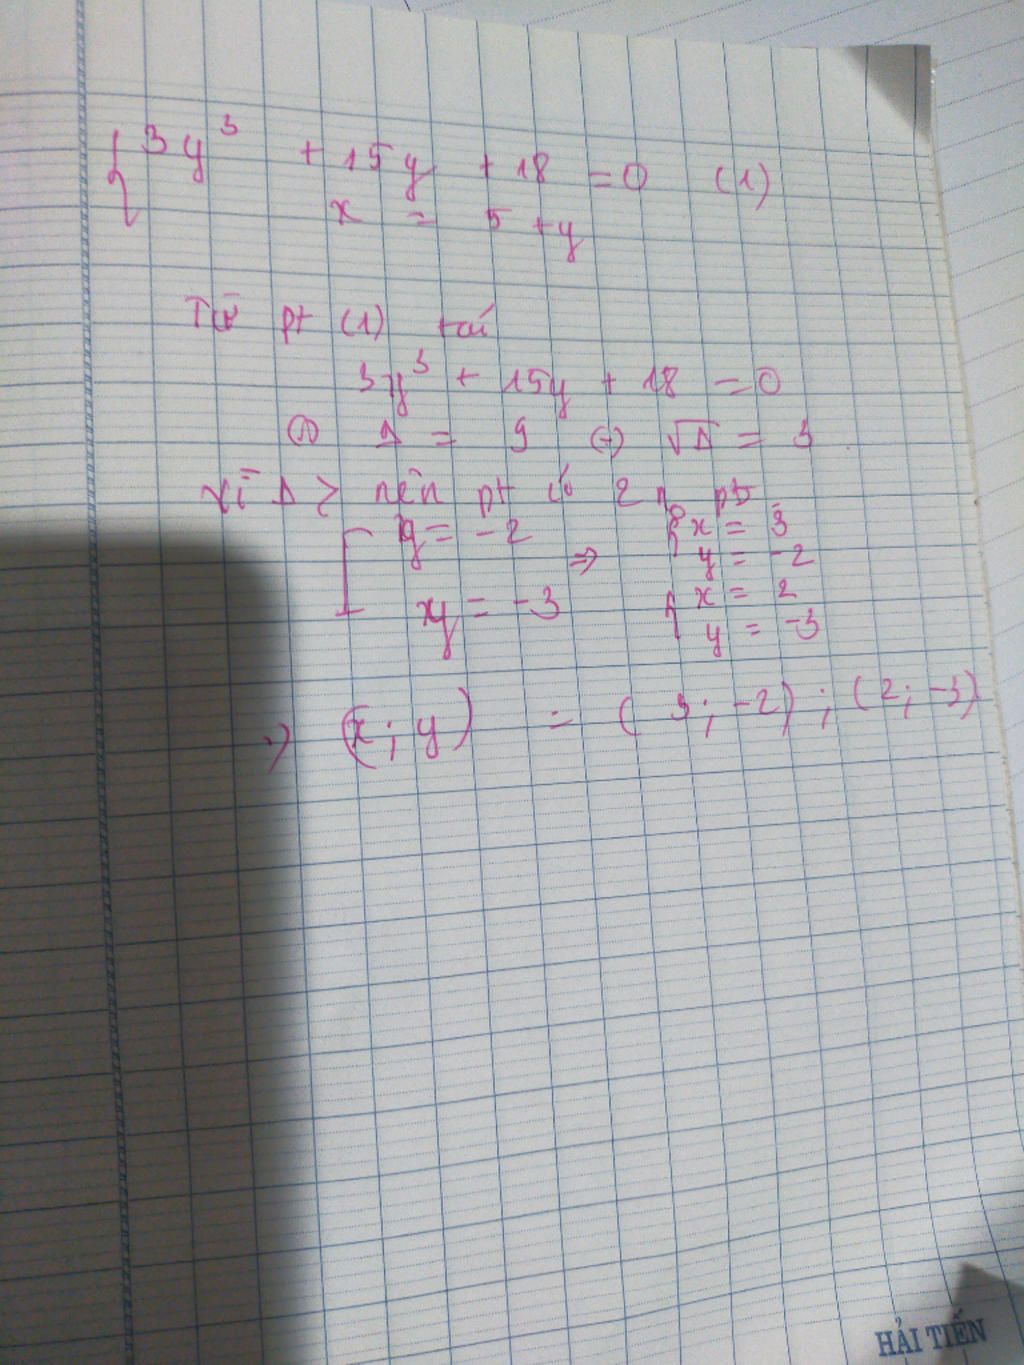 { 3y³ + 15y + 18 = 0 (1)
x = 5 + y
Từ pt (1) ta có
3y³ + 15y + 18 = 0
(⇔) Δ = 9 (⇔) √Δ = 3
Vì Δ > nên pt có 2 n₀ pb
[ y = -2 ⇒ { x = 3
y = -2
xy = -3 { x = 2
y = -3
→ (x; y) = (3; -2); (2; -3)
HẢI TIẾN